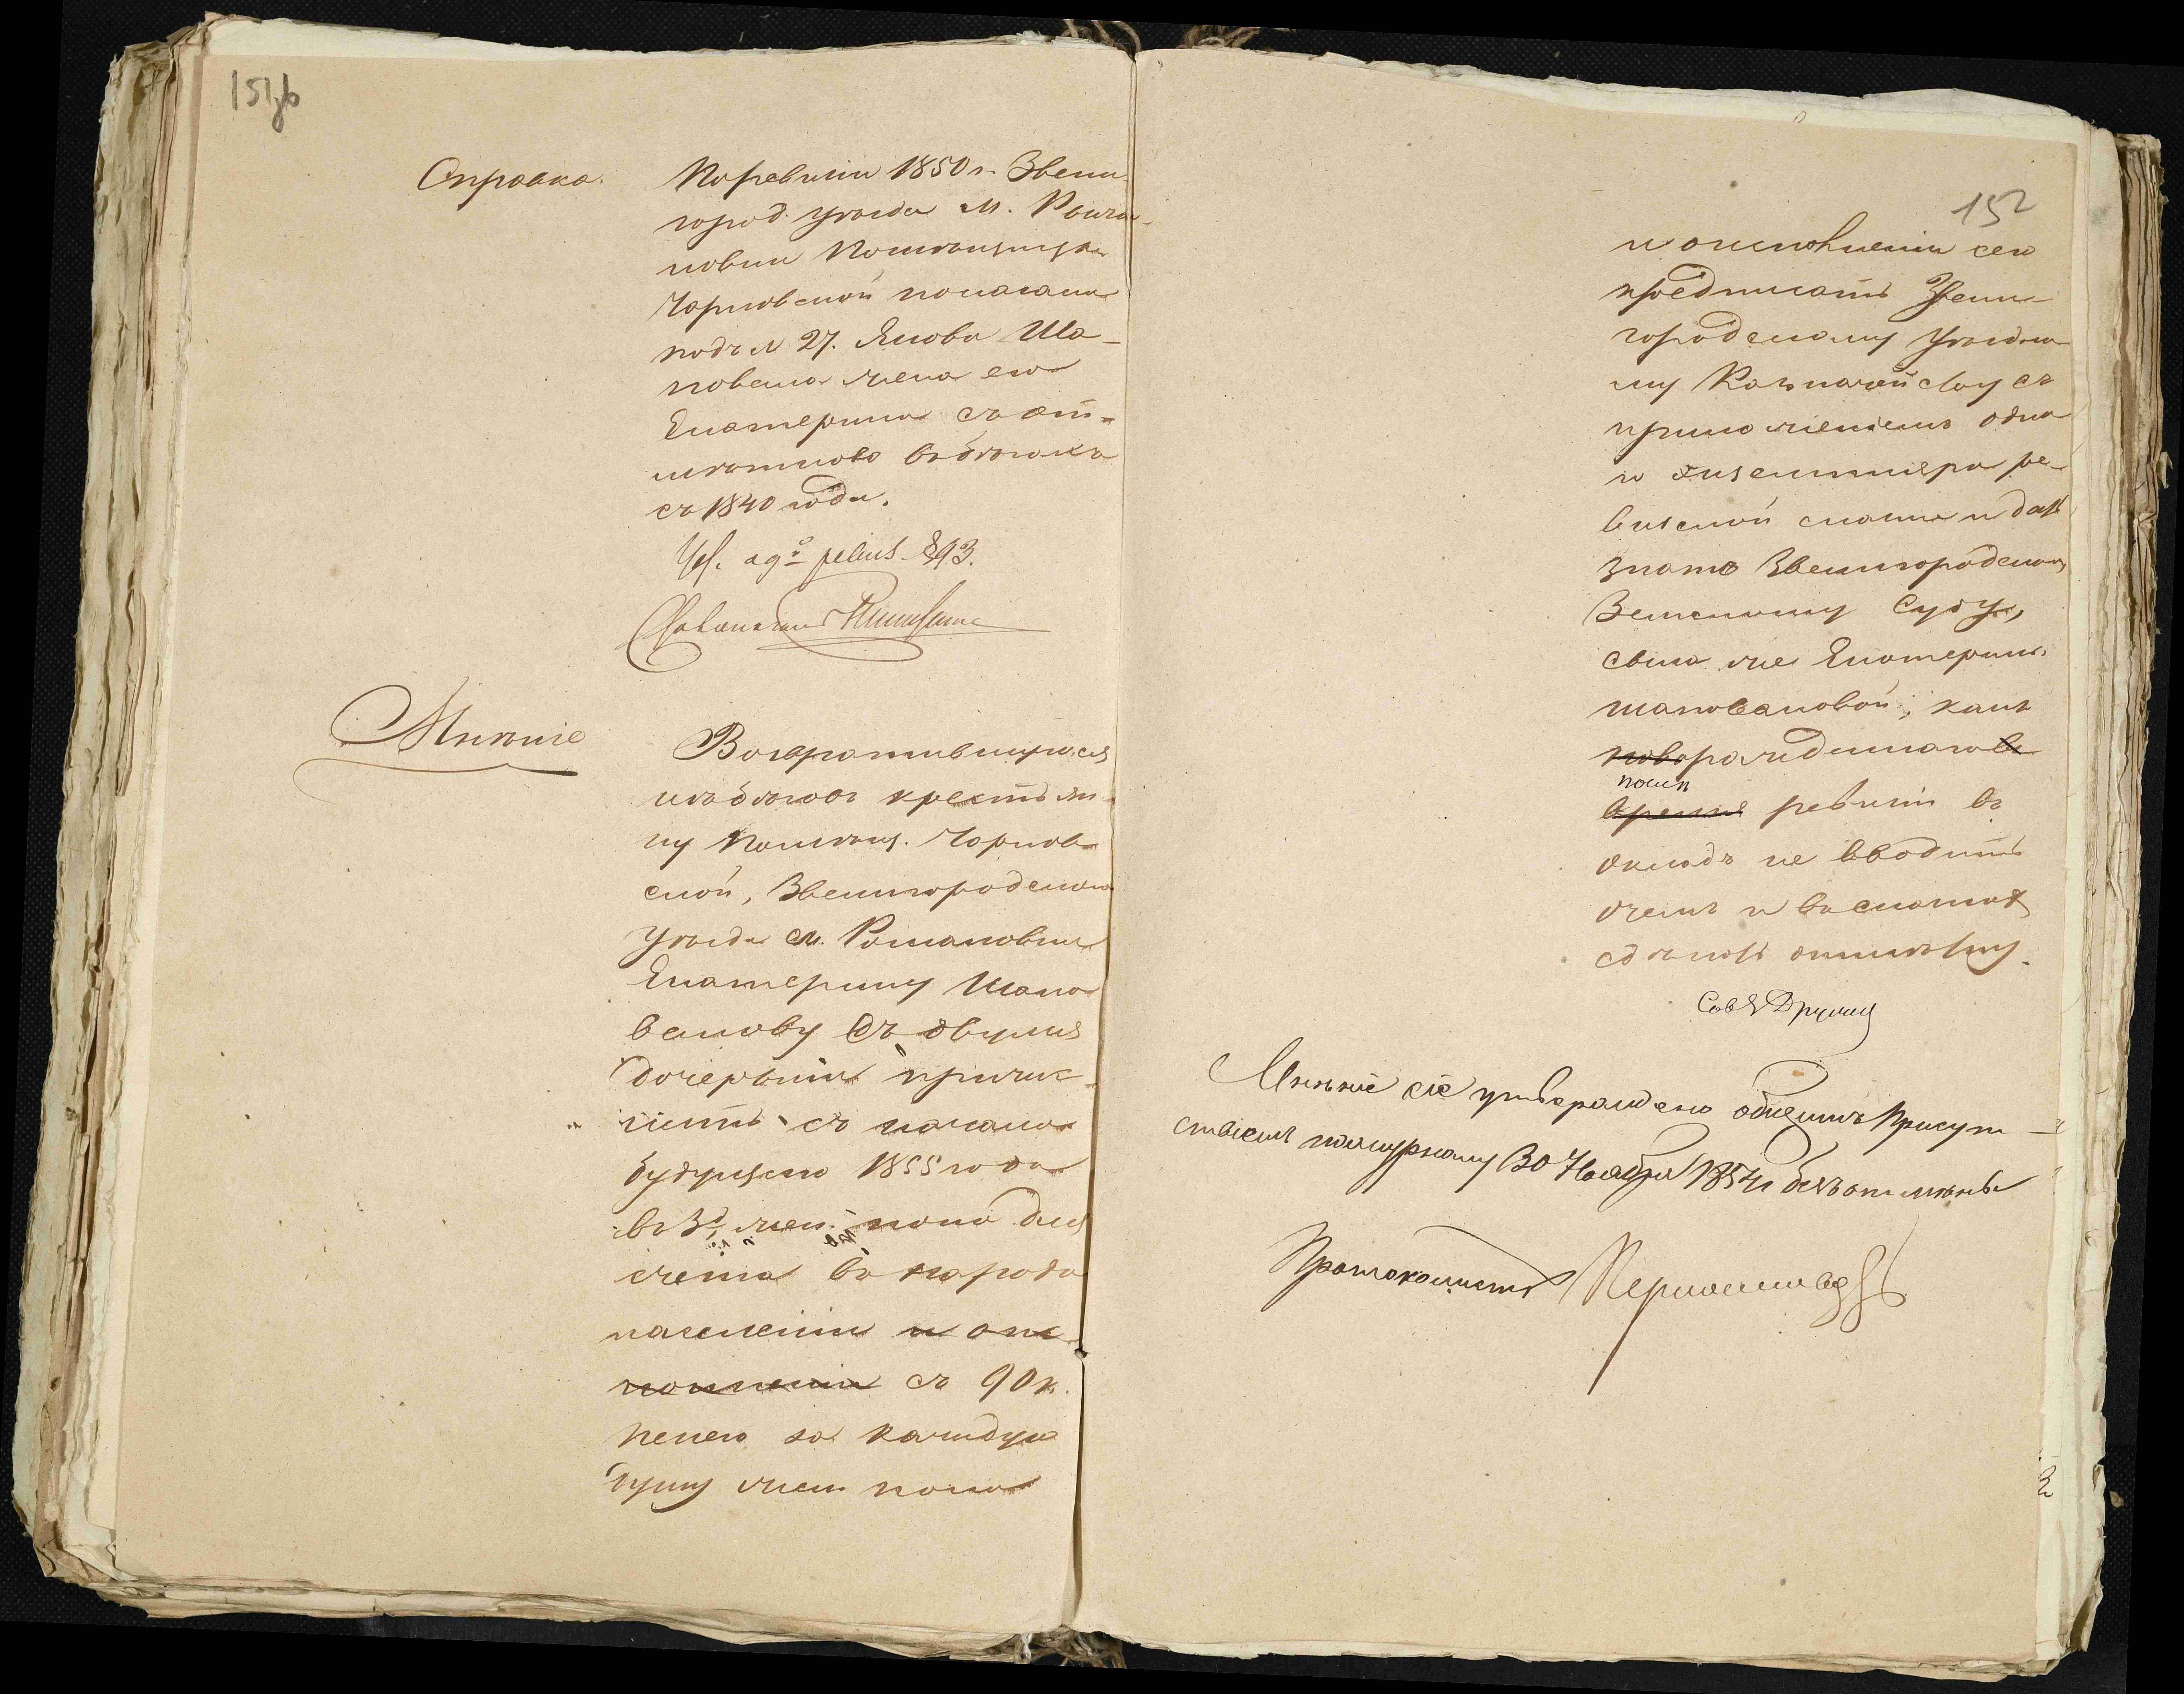 151 зв
Справка.
По ревизіи 1850 г. Звени
город. уѣзда м. Рома
новки Помѣщицы
Чарновской показана
подъ № 27. Якова Ша-
повала жена его
Екатерина съ от-
мѣткою въ бѣгахъ
съ 1840 года.
Мнѣніе
Возвратившуюся
изъ бѣговъ крестьян
ку Помѣщ. Чарнов
ской, Звенигородскаго
уѣзда м. Романовки
Екатерину Шапо
валову съ двумя
дочерьми причис
лить съ начала
будущаго 1855 года
въ
счета въ народо
населеніи и опо
съ 90 к.
пенею за каждую
душу жен пола
152
и о исполненіи сего
предписать Звени-
городскому Уѣздно
му Казначейству съ
приложеніемъ одно
го экземпляра ре-
визской сказки и дать
знать Звенигородскому
Земскому Суду,
сына же Екатерины
Шаповаловой, какъ
рожденнаго
послѣ
время ревизіи въ
окладъ не вводить
о чемъ и въ сказкѣ
сдѣлать отмѣтку.
Мнѣніе сіе утверждено общимъ Присут-
ствіемъ по журналу 30 Ноября 1854 г. безъ отмѣны
Протоколистъ